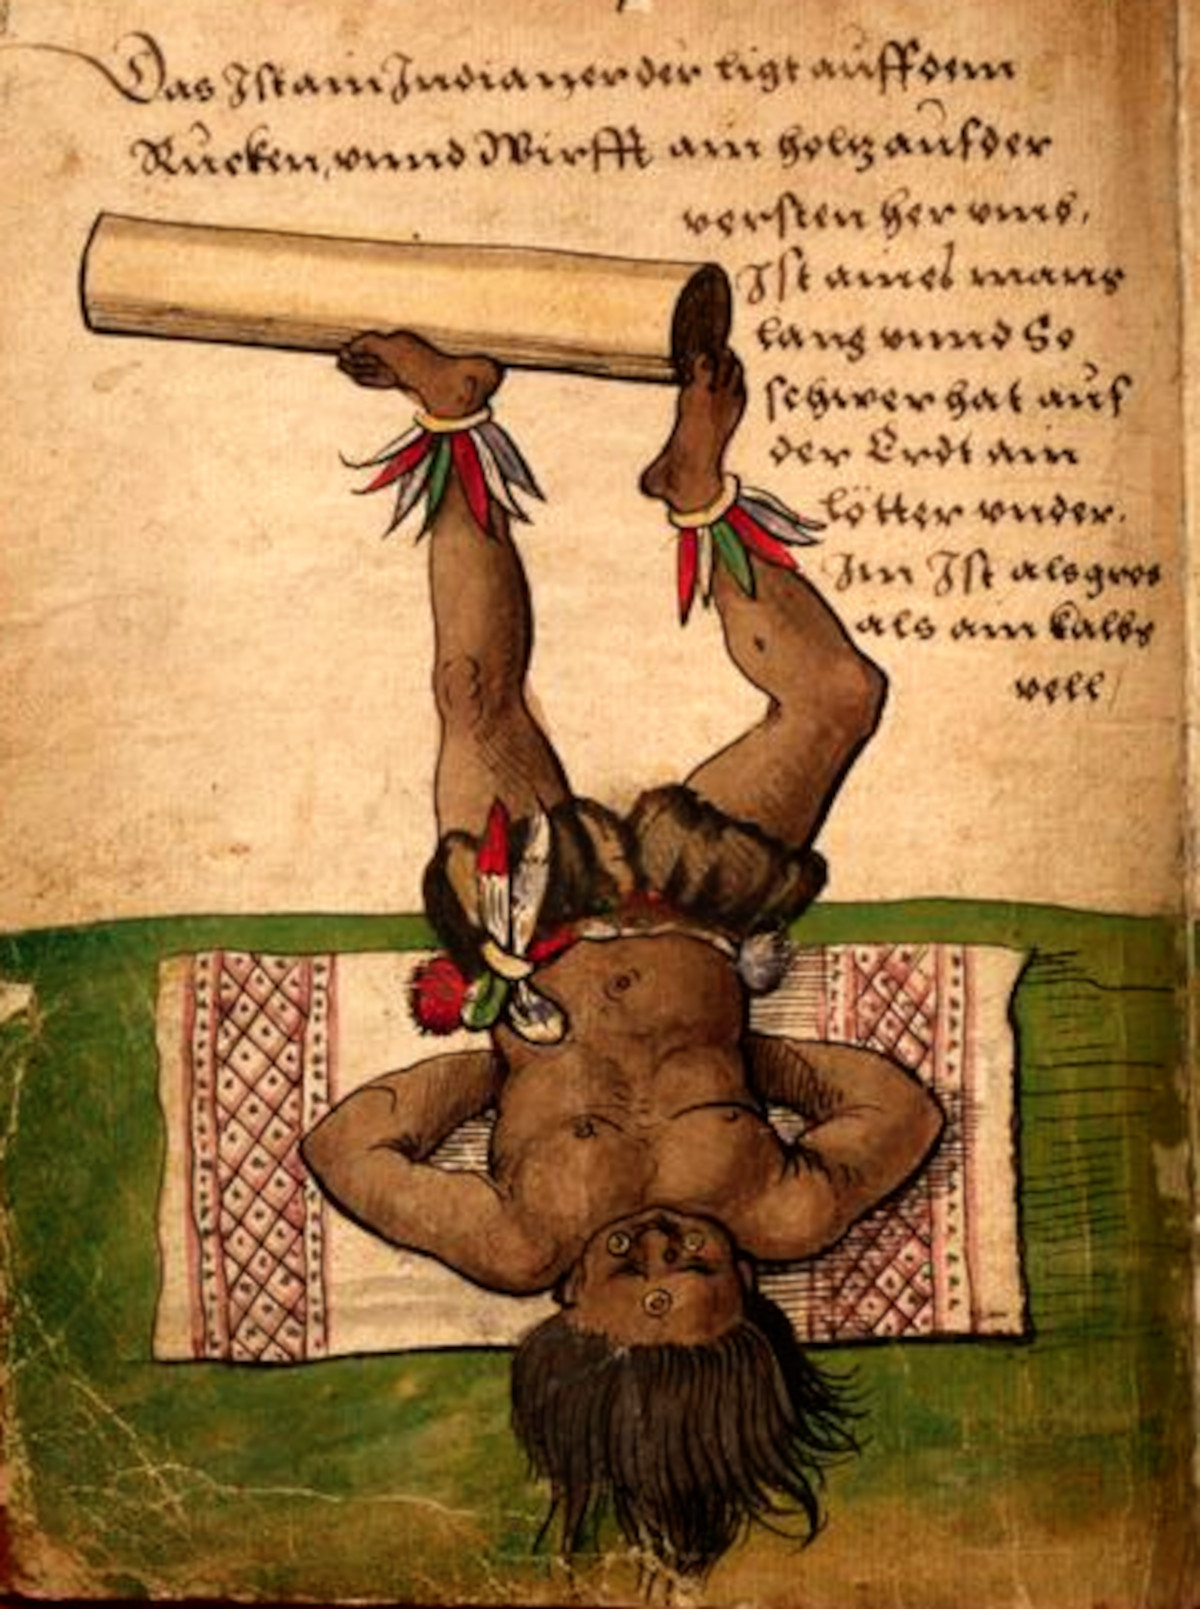 Das Ist ain Indianer der ligt auff dem
Rucken, vnnd Wirfft ain holtz auf der
versten her vmb,
Ist aines mans
lang vnnd So
schwer hat auf
der Erdt ain
lötter vnder.
Im Ist als gros
als ain kalbs
vell